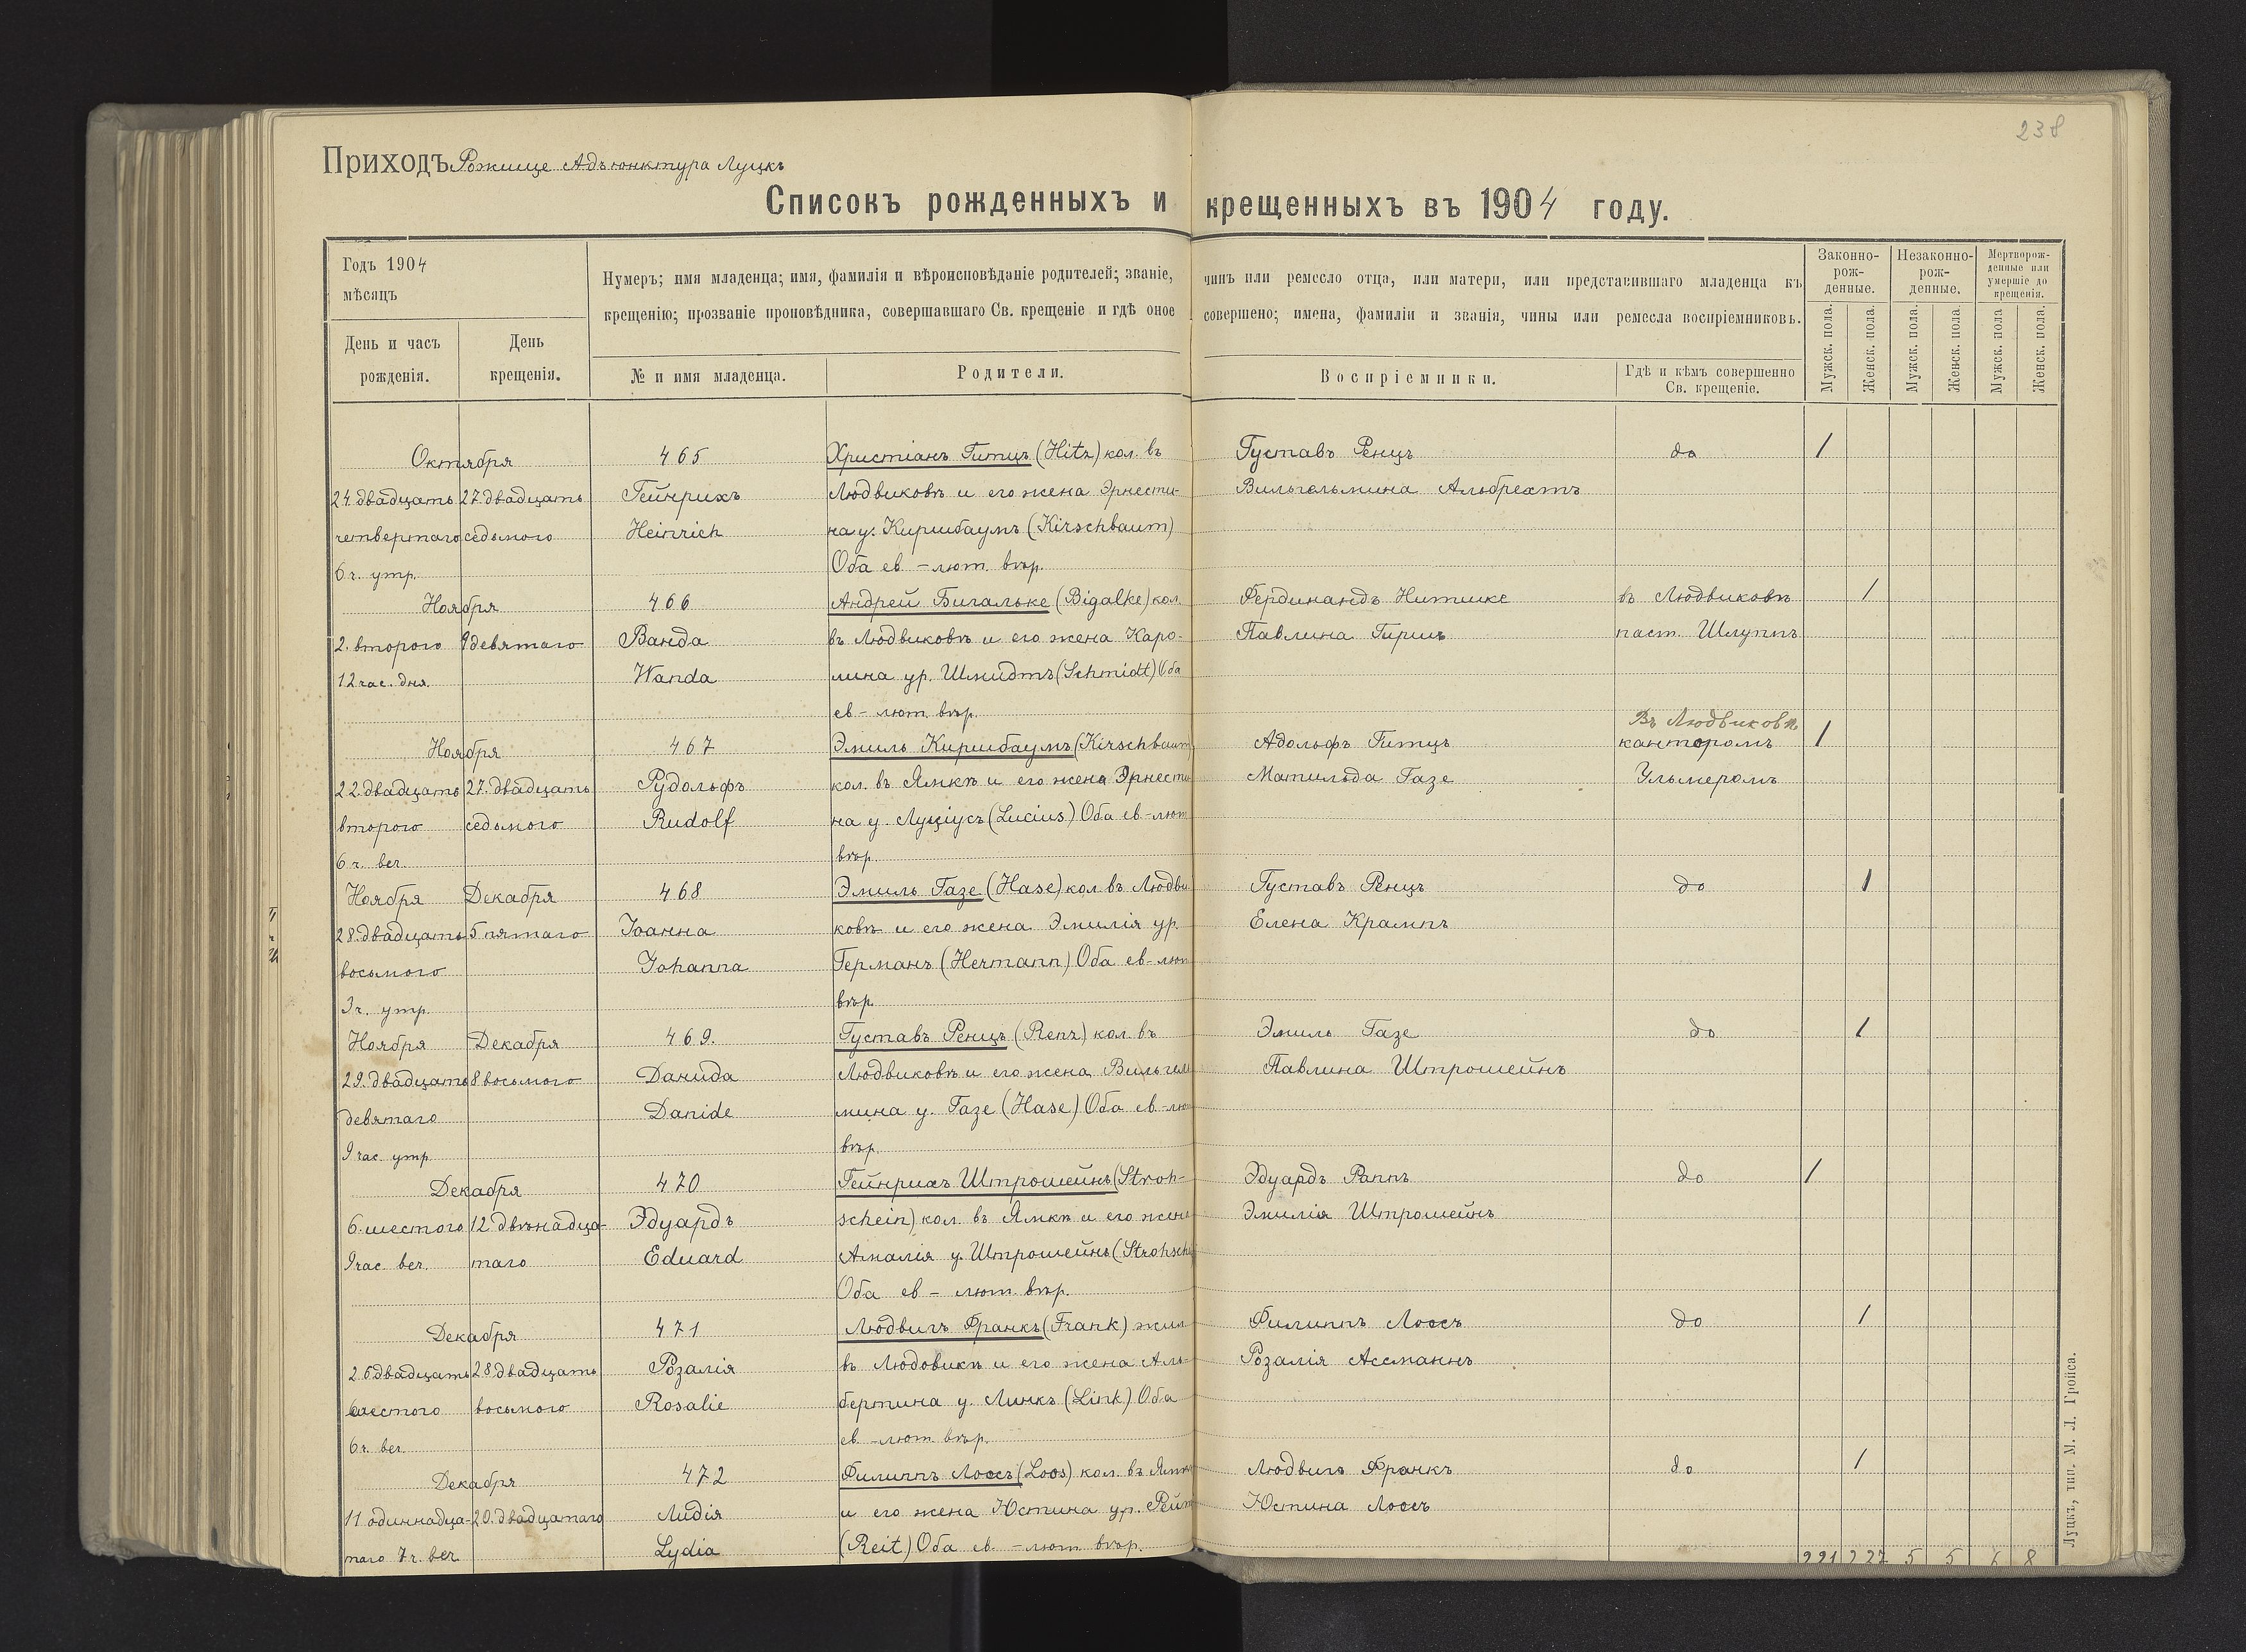 238
Приходъ Рожище Адъюнктура Луцкъ
Списокъ рожденныхъ и крещенныхъ въ 1904 году.
Годъ 1904
мѣсяцъ
День и часъ рожденія.
День крещенія.
Нумеръ; имя младенца; имя, фамилія и вѣроисповѣданіе родителей; званіе, чинъ или ремесло отца, или матери, или представившаго младенца къ
крещенію; прозваніе проповѣдника, совершавшаго Св. крещеніе и гдѣ оное совершено; имена, фамиліи и званія, чины или ремесла воспріемниковъ.
№ и имя младенца.
Родители.
Воспріемники.
Гдѣ и кѣмъ совершенно Св. крещеніе.
Законно-рож-денные.
Незаконно-рож-денные.
Мертворож-денные или умершіе до крещенія.
Мужск. пола. Женск. пола. Мужск. пола. Женск. пола Мужск. пола Женск. пола.
Октября 465 Христіанъ Гитцъ (Hitz) кол. въ Густавъ Ренцъ до 1
24. двадцать 27. двадцать Гейнрихъ Людвиковѣ и его жена Эрнести- Вильгельмина Альбрехтъ
четвертаго седьмого Heinrich на у. Киршбаумъ (Kirschbaum)
6 ч. утр. Оба ев – лют. вѣр.
Ноября 466 Андрей Бигальке (Bigalke) кол. Фердинандъ Нитшке въ Людвиковѣ 1
2. второго 9 девятаго Ванда въ Людвиковѣ и его жена Каро- Павлина Гиршъ паст. Шлуппъ
12 час. дня. Wanda лина ур. Шмидтъ (Schmidt) Оба
ев – лют. вѣр.
Въ Людвиковѣ
Ноября 467 Эмиль Киршбаумъ (Kirschbaum) Адольфъ Гитцъ канторомъ 1
22. двадцать 27. двадцать Рудольфъ кол. въ Ямкѣ и его жена Эрнести Матильда Газе Ульмеромъ
второго седьмого Rudolf на у. Луціусъ (Lucius) Оба ев – лют
6 ч. веч. вѣр.
Ноября Декабря 468 Эмиль Газе (Hase) кол. въ Людви Густавъ Ренцъ до 1
28. двадцать 5 пятаго Іоанна ковѣ и его жена Эмилія ур. Елена Крампъ
восьмого Johanna Германъ (Hermann) Оба ев – лют
3 ч. утр. вѣр.
Ноября Декабря 469. Густавъ Ренцъ (Renz) кол. въ Эмиль Газе до 1
29. двадцать 8 восьмого Данида Людвиковѣ и его жена Вильгель Павлина Штрошейнъ
девятаго Danide мина у. Газе (Hase) Оба ев – лю
9 час. утр. вѣр.
Декабря 470 Гейнрихъ Штрошейнъ (Stroh- Эдуардъ Раппъ до 1
6. шестого 12. двѣнадца- Эдуардъ schein) кол. въ Ямкѣ и его жена Эмилія Штрошейнъ
9 час. веч. таго Eduard Амалія у. Штрошейнъ (Strohsche
Оба ев – лют. вѣр.
Декабря 471 Людвигъ Франкъ (Frank) жит Филиппъ Лоосъ до 1
26 двадцать 28 двадцать Розалія въ Людовикѣ и его жена Аль- Розалія Ассманнъ
шестого восьмого Rosalie бертина у. Линкъ (Link) Оба
6 ч. веч. ев. – лют. вѣр.
Декабря 472 Филиппъ Лоосъ (Loos) кол. въ Ямкѣ Людвигъ Франкъ до 1
11. одиннадца- 20. двадцатаго Лидія и его жена Юстина ур. Рейтъ Юстина Лоосъ
таго 7 ч. веч. Lydia (Reit) Оба ев. – лют. вѣр.
5 5 8
Луцкъ, тип. М. Л. Гройса.